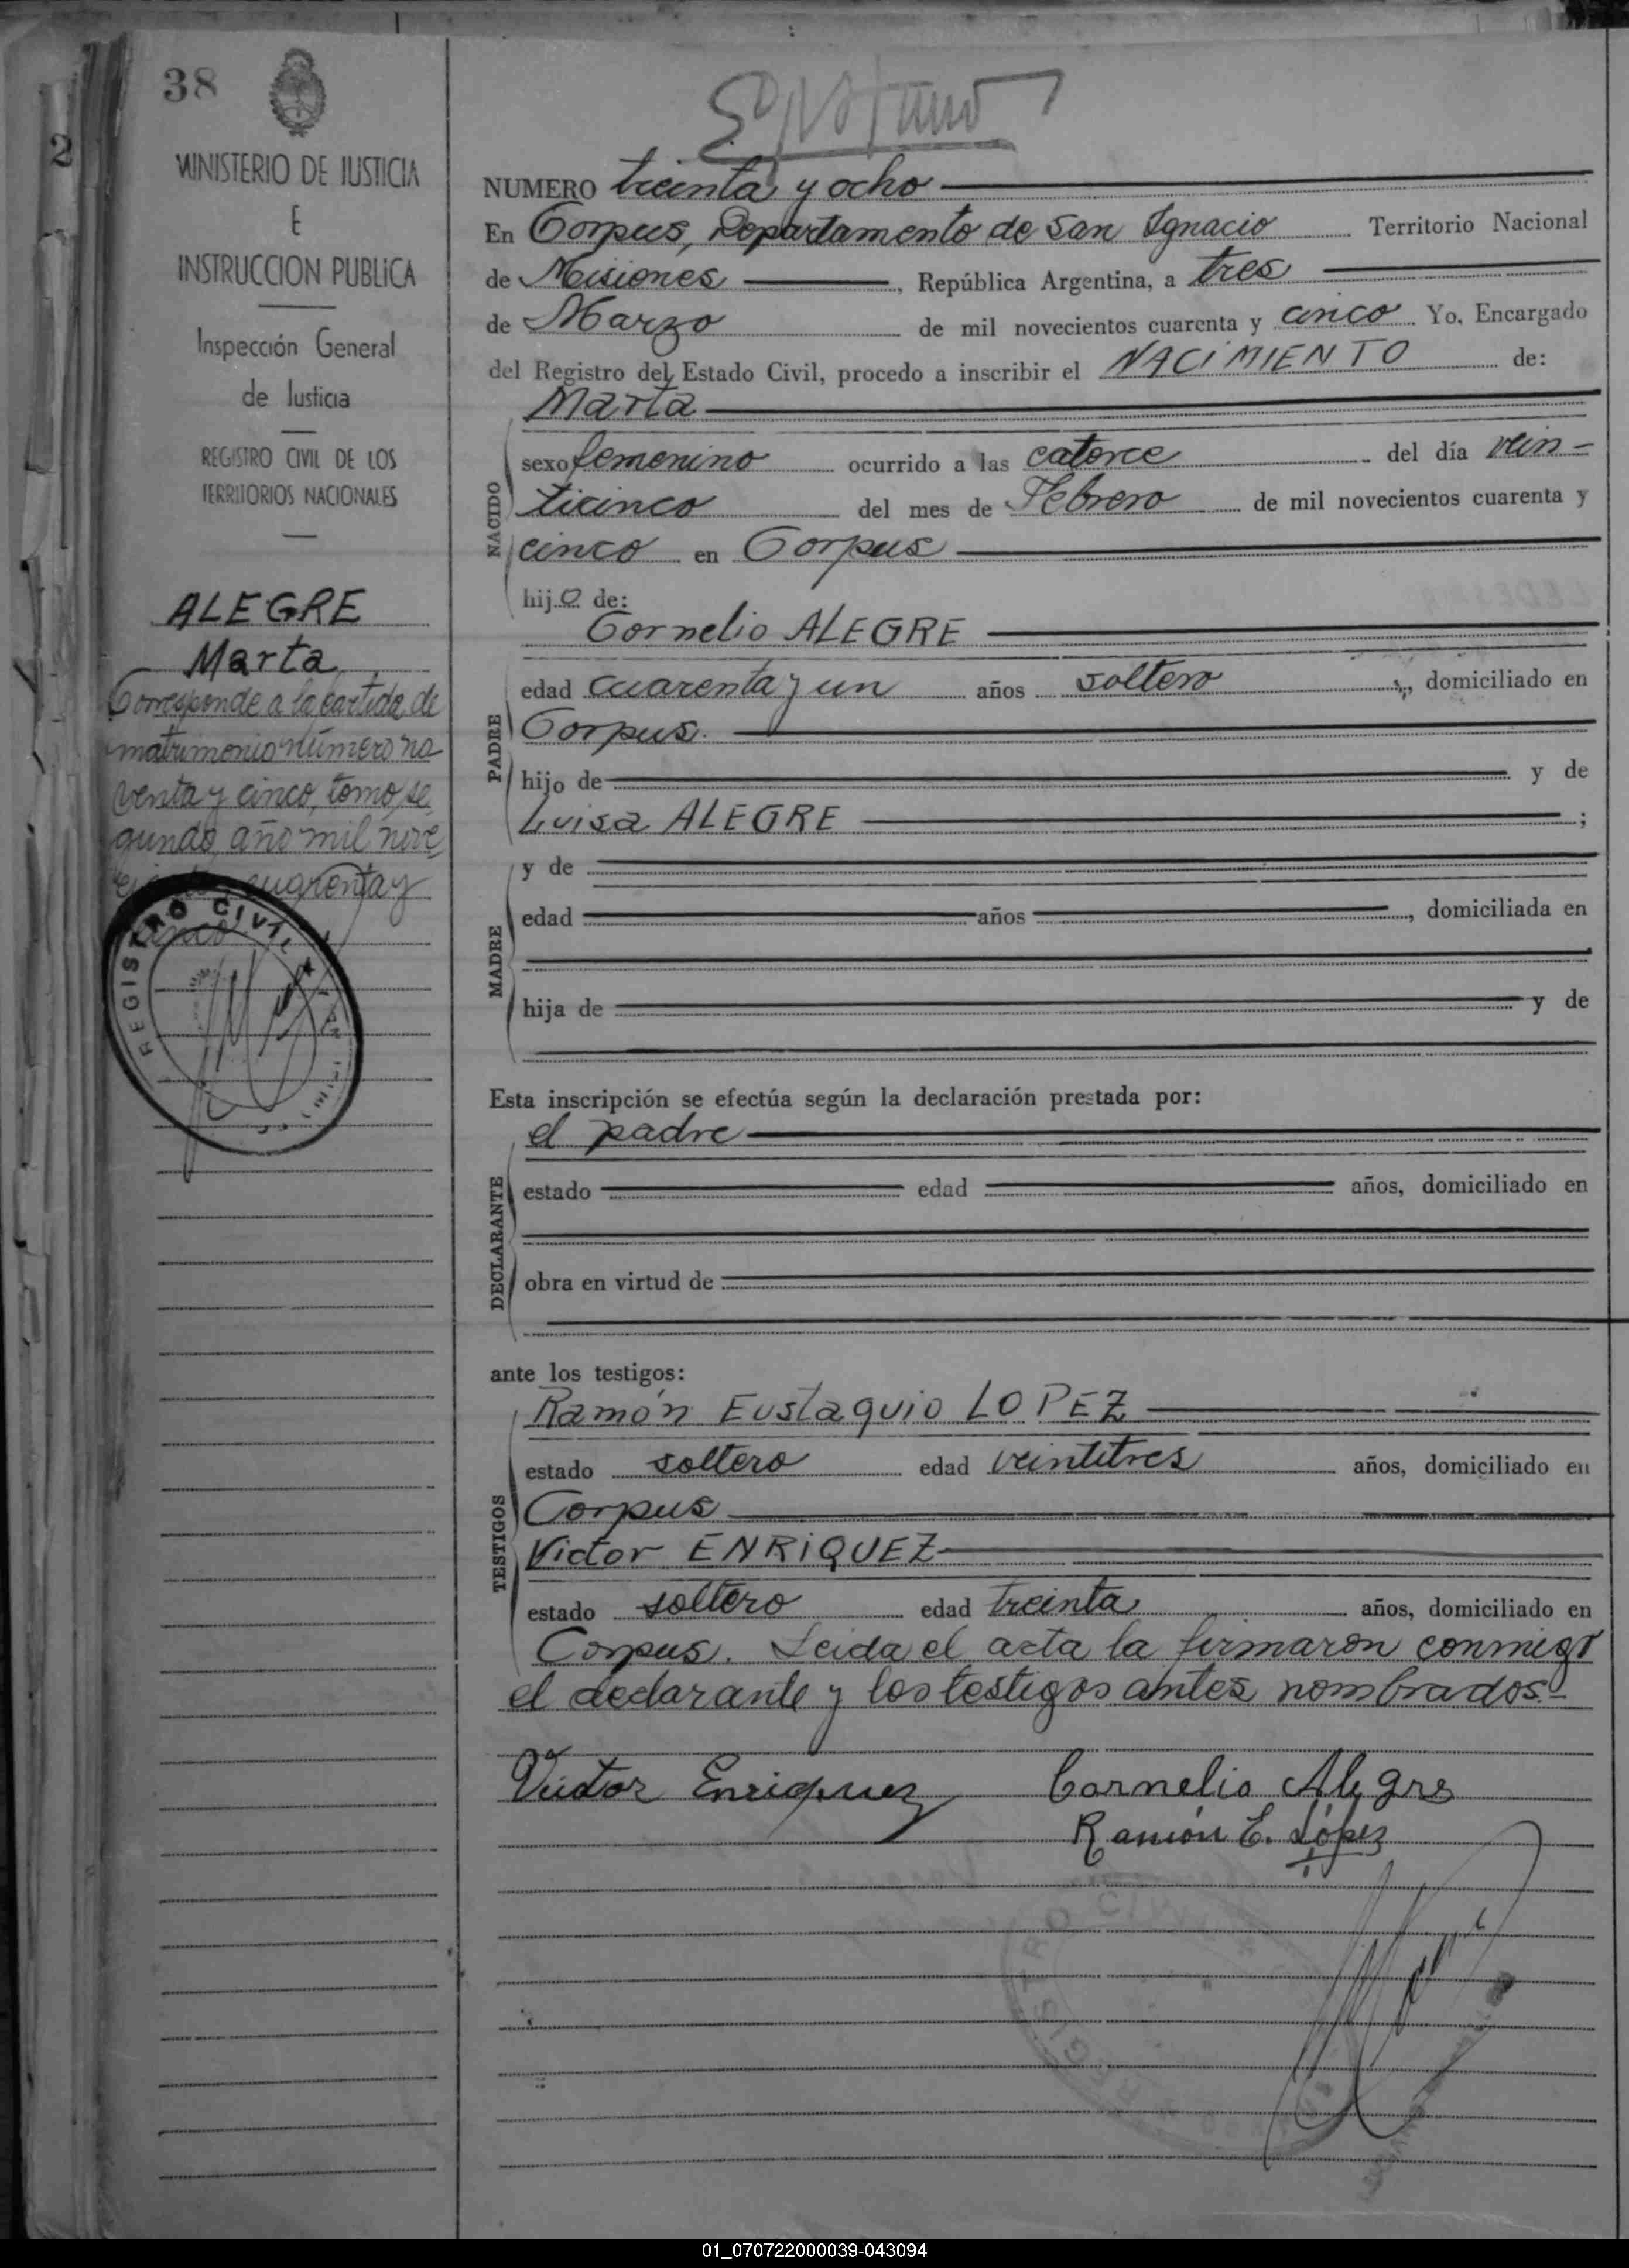 38
2
MINISTERIO DE JUSTICIA
E
INSTRUCCION PUBLICA
Inspección General
de Justicia
REGISTRO CIVIL DE LOS
TERRITORIOS NACIONALES
ALEGRE
Marta
Corresponde a la partida de
matrimonio número no
venta y cinco, tomo, se
gundo, año mil nove
cuarenta y
cinco
REGISTRO CIVIL
NUMERO treinta y ocho
En Corpus, Departamento de San Ignacio Territorio Nacional
de Misiones, República Argentina, a tres
de Marzo de mil novecientos cuarenta y cinco Yo, Encargado
del Registro del Estado Civil, procedo a inscribir el NACIMIENTO de:
Marta
NACIDO
sexo femenino ocurrido a las catorce del día vein-
ticinco del mes de Febrero de mil novecientos cuarenta y
cinco en Corpus
hijo de:
Cornelio ALEGRE
PADRE
edad cuarenta y un años soltero, domiciliado en
Corpus.
hijo de y de
Luisa ALEGRE ;
MADRE
y de
edad años, domiciliada en
hija de y de
Esta inscripción se efectúa según la declaración prestada por:
el padre
DECLARANTE
estado edad años, domiciliado en
obra en virtud de
ante los testigos:
Ramón Eustaquio LOPEZ
TESTIGOS
estado soltero edad veintitres años, domiciliado en
Corpus
Victor ENRIQUEZ
estado soltero edad treinta años, domiciliado en
Corpus. Leida el acta la firmaron conmigo
el declarante y los testigos antes nombrados.-
Victor Enriquez Cornelio Alegre
Ramón E. López
01_070722000039-043094